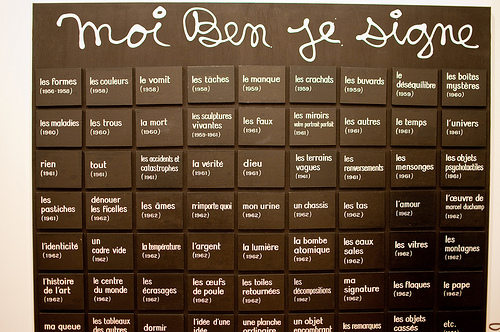 moi Ben je signe
les formes (1956-1958) les couleurs (1958) le vomit (1958) les taches (1958) le manque (1959) les crachats (1959) les buvards (1959) le déséquilibre (1959) les boîtes mystères (1960)
les maladies (1960) les trous (1960) la mort (1960) les sculptures vivantes (1959-1961) les faux (1961) les miroirs votre portrait parfait (1961) les autres (1961) le temps (1961) l'univers (1961)
rien (1961) tout (1961) les accidents et catastrophes (1961) la vérité (1961) dieu (1961) les terrains vagues (1961) les renversements (1961) les mensonges (1961) les objets psychotactiles (1961)
les pastiches (1961) dénouer les ficelles (1962) les âmes (1962) n'importe quoi (1962) mon urine (1962) un chassis (1962) les tas (1962) l'amour (1962) l'œuvre de marcel duchamp (1962)
l'identicité (1962) un cadre vide (1962) la température (1962) l'argent (1962) la lumière (1962) la bombe atomique (1962) les eaux sales (1962) les vitres (1962) les montagnes (1962)
l'histoire de l'art (1962) le centre du monde (1962) les écrasages (1962) les œufs de poule (1962) les toiles retournées (1962) les décompositions (1962) ma signature (1962) les flaques (1962) le pape (1962)
ma queue les tableaux des autres dormir l'idée d'une idée une planche ordinaire un objet encombrant les remarques les objets cassés etc.